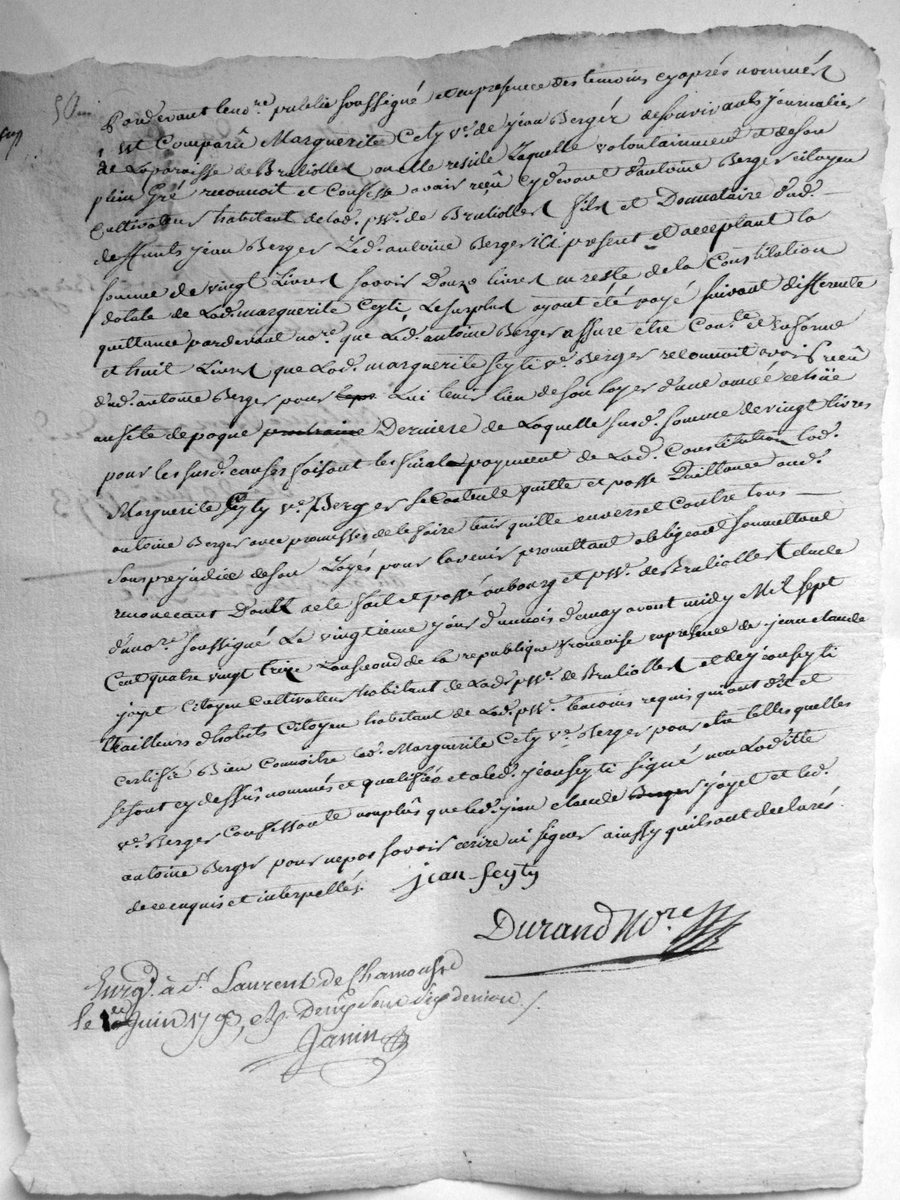 Pardevant le no.re publié soussigné et en presence des temoins cyaprés nommés
est Comparüe Marguerite Cety v.e de jean Berger de souvivants journalier
de La paroisse de Brulioles ou elle reside Laquelle volontairement et de son
plein Gré reconnoit et Confesse avoir reçû cydevant d'antoine Berger citoyen
Cultivateur habitant de lad. p.sse de Bruliolles fils et Donnataire dud.
deffunts jean Berger Led. antoine Berger ici present et acceptant la
somme de vingt Livres savoir Douze livres en reste de la Constitution
dotale de Lad. marguerite Ceyti, Le surplus ayant été payé suivant differente
quittance pardevant no.re que Lad. antoine Berger assure etre Cont.le et En forme
et huit Livres que Lad. marguerite Seyti v.e Berger reconnoit avoir reçû
dud. antoine Berger pour Lui tenir lieu de son loyer d'une année echüe
au fete de paque prochaine Derniere de Laquelle susd. somme de vingt livres
pour les susd. causes faisant les final payement de Lad. Constitution lad.
Marguerite Seyty v.e Berger se contente quitte et passe Quittance aud.
antoine Berger avec promesses de le faire tenir quitte envers et Contre tous
Sans prejudice de son Loyés pour lavenir promettant obligeant soumettant
renonceant Dont acte fait et passé au bourg et p.sse de Bruliolles etude
du no.re soussigné Le vingtieme jour du mois de may avant midy Mil sept
Cent quatre vingt treize Lan second de la republique françoise en presence de jean claude
joyet Citoyen Cultivateur habitant de Lad. p.sse de Bruliolles et de jean seyti
tailleurs d'habits Citoyen habitant de Lad. p.sse temoins requis qui ont dit et
certifié Bien Connoitre lad. Marguerite Cety v.e Berger pour etre telles quelles
se sont cy dessûs nommés et qualifiée et a led. jean seyti signé non Laditte
v.e Berger Confessante non plûs que led. jean claude Berger joyet et led.
antoine Berger pour ne pas savoir ecrire ni signer ainsy quils ont declarés
de ce enquis et interpellés.
jean seyty
Durand No.re
Enrg.é à S.t Laurent de Chamousset
le 1.er juin 1793, Deux sous six deniers
Janin